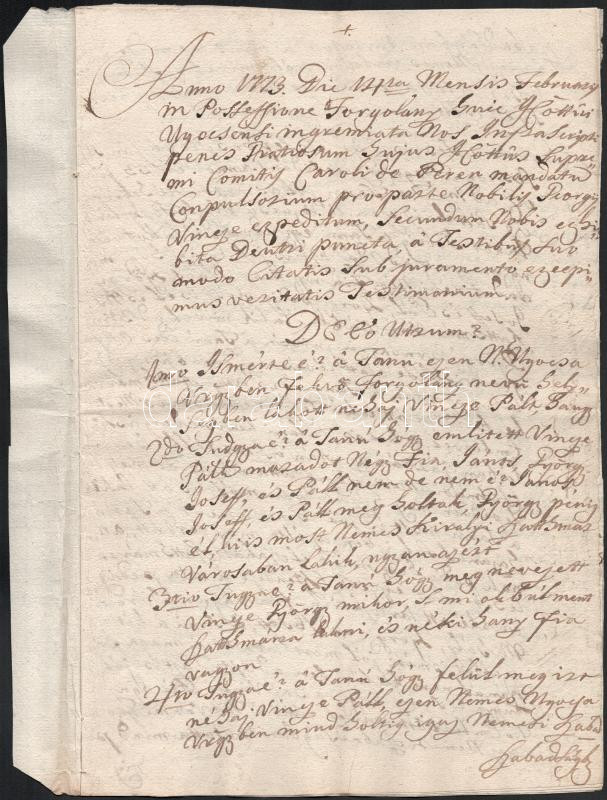 Anno 1773. Die 12 Mensis February
in Possessione Forgolany Huic I Cottui
Ugocsensi ingremiata Nos Infra Scripti
penes Hujus I Cottus Supre
mi Comitis Caroli de Feren mandatum
Conpulsorium pro parte Nobilis Georgy
Vincze expeditum, Secundum Nobis exhi
bita Deutri puncta, â Testibus Suo
modo Citatis Sub juramento excepi
mus veritatis Testimonium
De eo Utrum?
1mo Ismérte é? â Tanú ezen N. Ugocsa
Vrgyben fekvö Forgolany nevü Hely
ségben lakott néhai Vincze Pált, hanyj
2do Tudgyaé? â Tanú hogy emlitett Vincze
Páll maradot Négy Fia János György
Joseff és Páll nem de nem é? János
Joseff, és Páll meg holtak, György pénig
él, ki is most Nemes Kiralyi Szathmar
Városaban Lakik, ugyan azért
3tio Tugyae? â Tanú hogy meg nevezett
Vincze György mikor, s mi okbúl ment
Szathmarra Lakni, és neki hany fia
vagyon
4to Tugyaé? â Tanú hogy felül meg irt
néhai Vincze Páll, ezen Nemes Ugocsa
Vrgyben mind holtig igaz Nemesi Szabad
Szabadságb